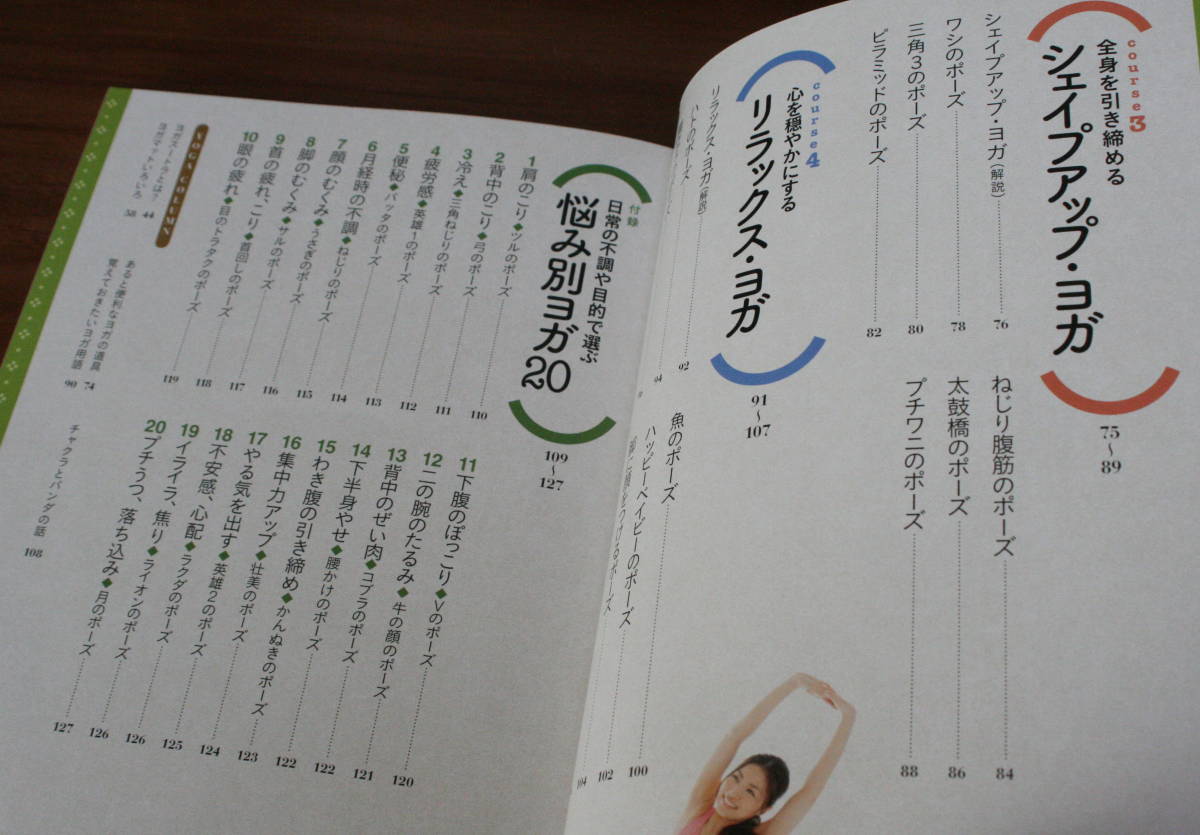 course3
全身を引き締める
シェイプアップ・ヨガ
75〜89
シェイプアップ・ヨガ(解説) 76
ワシのポーズ 78
三角3のポーズ 80
ピラミッドのポーズ 82
ねじり腹筋のポーズ 84
太鼓橋のポーズ 86
プチワニのポーズ 88
course4
心を穏やかにする
リラックス・ヨガ
91〜107
リラックス・ヨガ(解説) 92
ハトのポーズ 94
魚のポーズ
ハッピーベイビーのポーズ 100
102
104
付録
日常の不調や目的で選ぶ
悩み別ヨガ20
109〜127
1 肩のこり◆ツルのポーズ 110
2 背中のこり◆弓のポーズ 111
3 冷え◆三角ねじりのポーズ 112
4 疲労感◆英雄1のポーズ 113
5 便秘◆バッタのポーズ 114
6 月経時の不調◆ねじりのポーズ 115
7 顔のむくみ◆うさぎのポーズ 116
8 脚のむくみ◆サルのポーズ 117
9 首の疲れ、こり◆首回しのポーズ 118
10 眼の疲れ◆目のトラタクのポーズ 119
11 下腹のぽっこり◆Vのポーズ 120
12 二の腕のたるみ◆牛の顔のポーズ 121
13 背中のぜい肉◆コブラのポーズ 122
14 下半身やせ◆腰かけのポーズ 122
15 わき腹の引き締め◆かんぬきのポーズ 123
16 集中力アップ◆壮美のポーズ 124
17 やる気を出す◆英雄2のポーズ 125
18 不安感、心配◆ラクダのポーズ 126
19 イライラ、焦り◆ライオンのポーズ 126
20 プチうつ、落ち込み◆月のポーズ 127
YOGA COLUMN
ヨガスートラとは? 44
ヨガマットいろいろ 58
あると便利なヨガの道具 74
覚えておきたいヨガ用語 90
チャクラとバンダの話 108